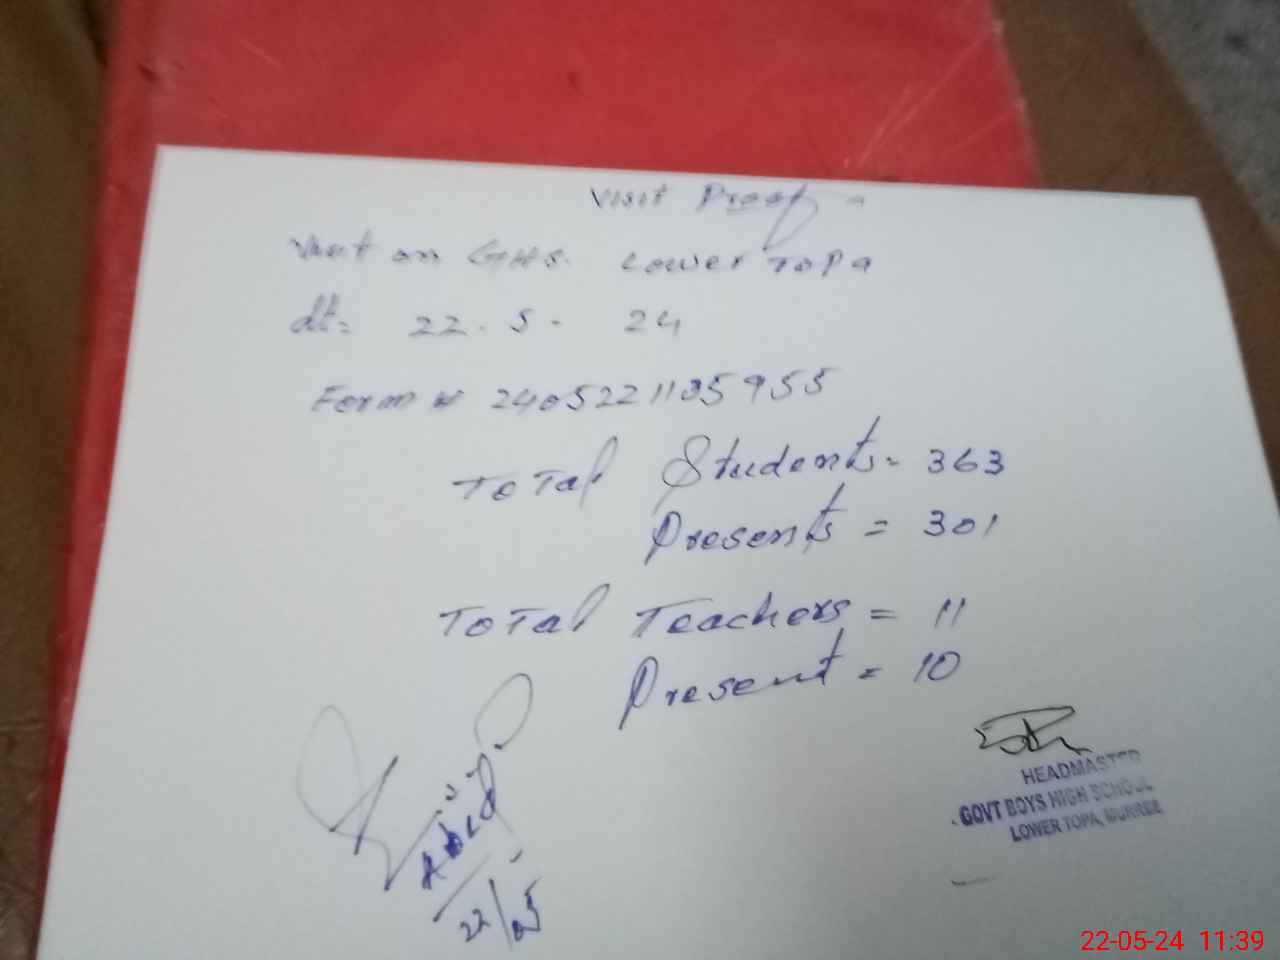 Visit Proof
Visit on GHS. Lower Topa
dt= 22.5.24
Form # 2405221135955
Total Students = 363
Presents = 301
Total Teachers = 11
Present = 10
HEADMASTER
GOVT BOYS HIGH SCHOOL
LOWER TOPA, MURREE
22/05
22-05-24 11:39